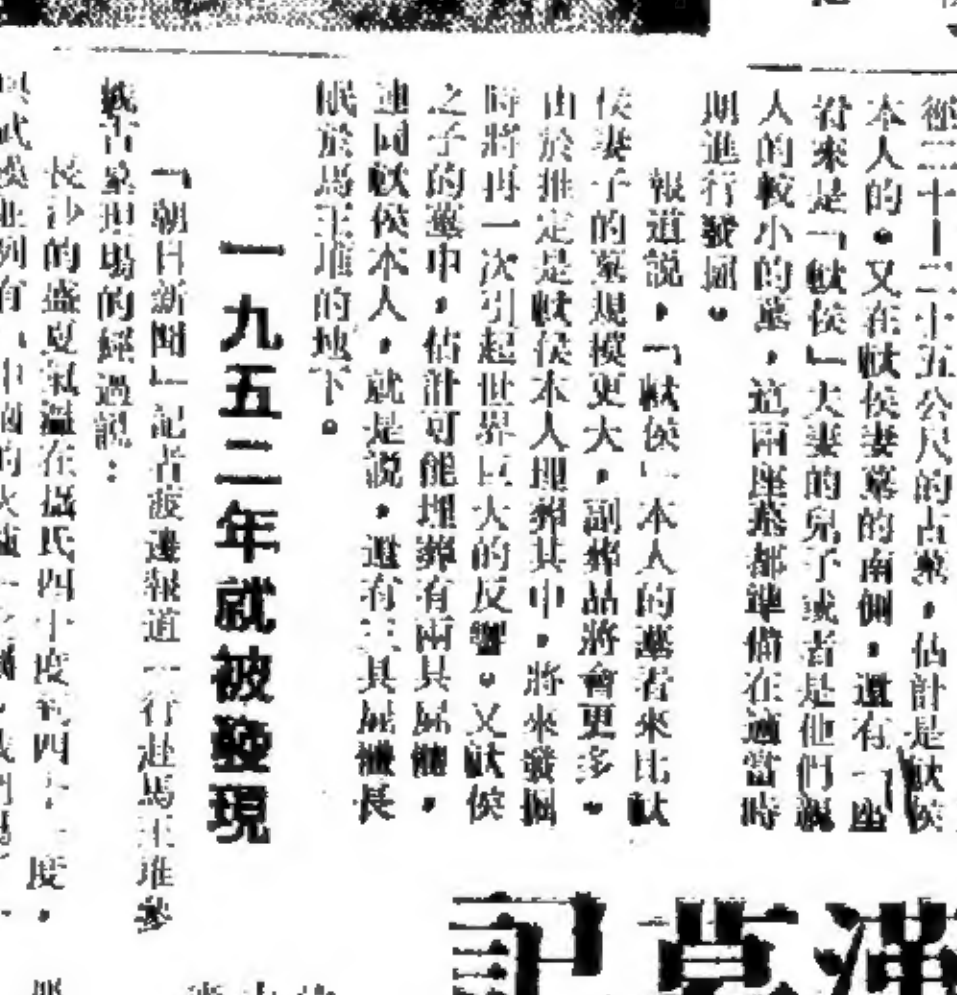 徑二十—二十五公尺的古墓，估計是軑侯
本人的。又在軑侯妻墓的南側，還有一座
看來是「軑侯」夫妻的兒子或者是他們親
人的較小的墓，這兩座墓都準備在適當時
期進行發掘。
報道說，「軑侯」本人的墓看來比軑
侯妻子的墓規模更大，副葬品將會更多。
由於推定是軑侯本人埋葬其中，將來發掘
時將再一次引起世界巨大的反響。又軑侯
之子的墓中，估計可能埋葬有兩具屍體，
連同軑侯本人，就是說，還有三具屍體長
眠於馬王堆的地下。
一九五二年就被發現
「朝日新聞」記者渡邊報道一行赴馬王堆參
觀古墓現場的經過說：
長沙的盛夏氣溫在攝氏四十度到四十一度，
漢墓記